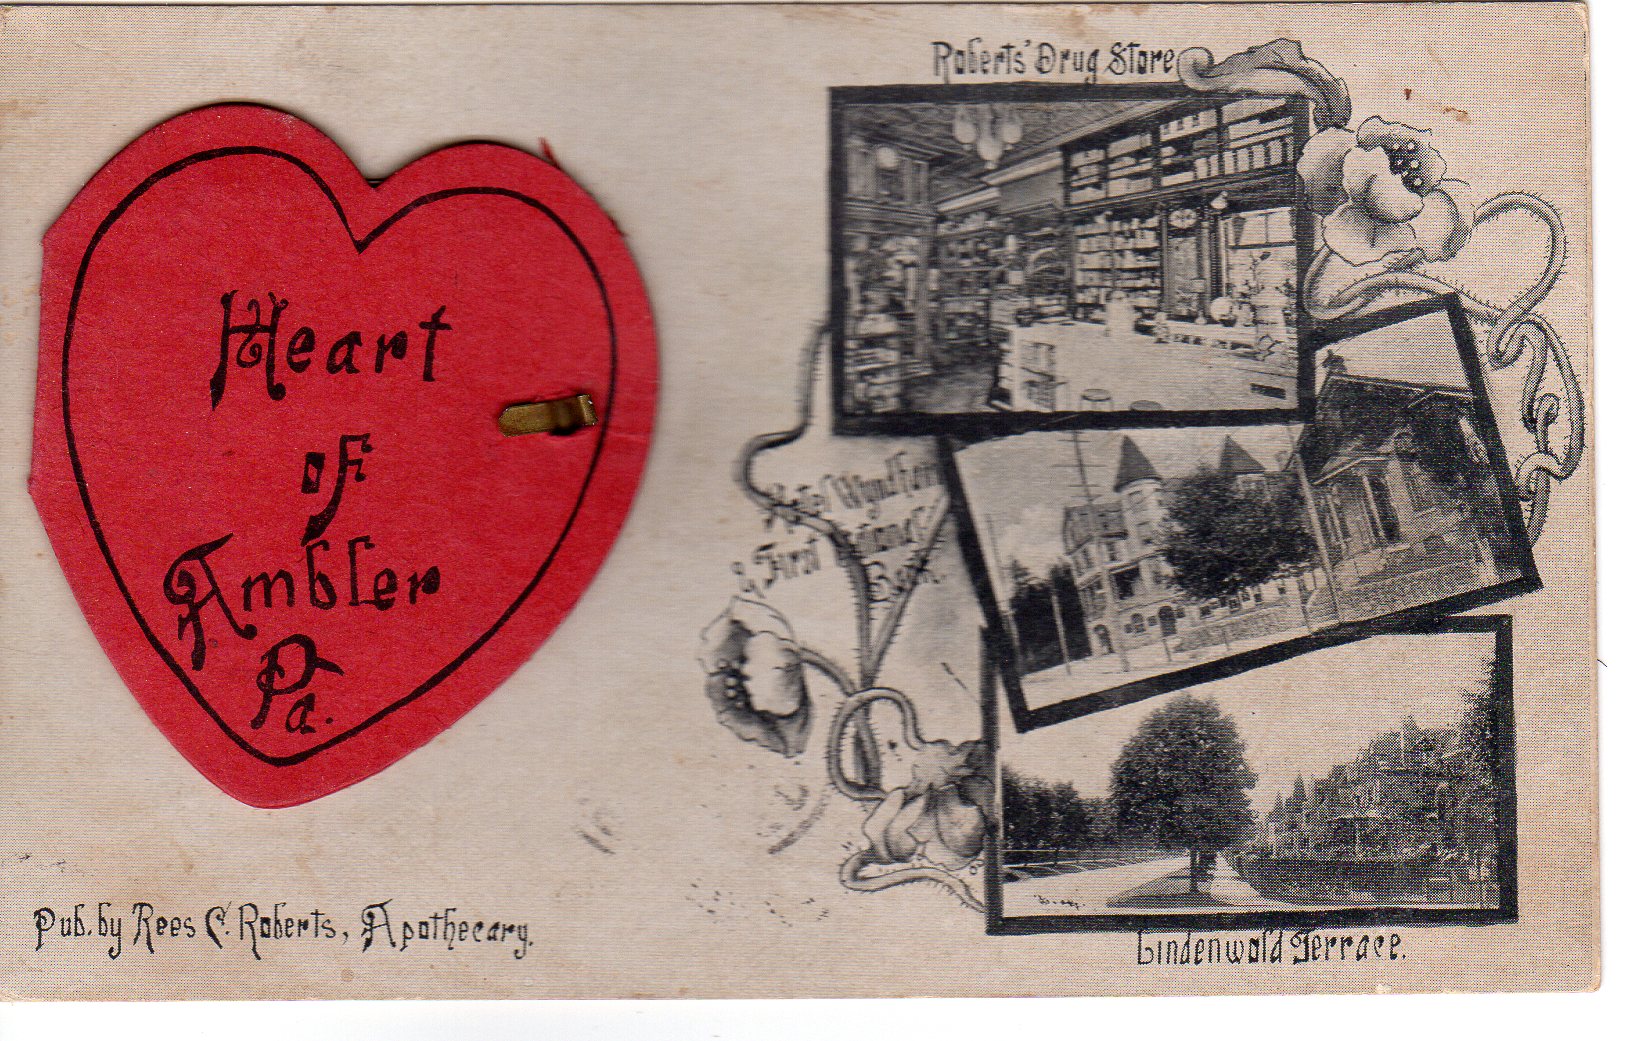 Heart
of
Ambler
Pa.
Pub. by Rees C. Roberts, Apothecary.
Roberts' Drug Store
Hotel Wyndham
& First National
Bank.
Lindenwold Terrace.